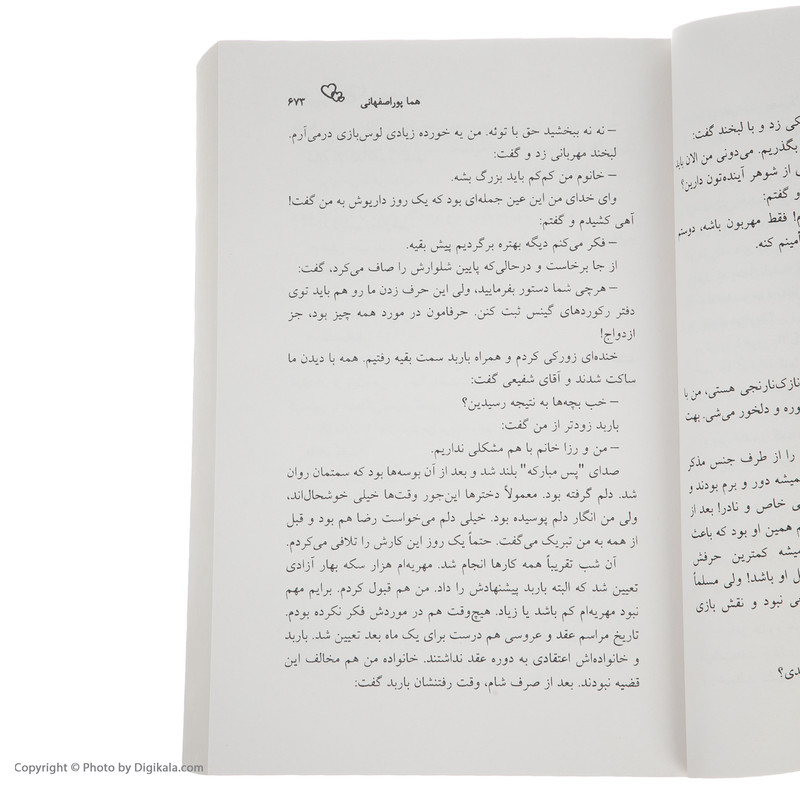 هما پوراصفهانی ۶۷۳
– نه نه ببخشید حق با توئه. من یه خورده زیادی لوس‌بازی درمی‌آرم.
لبخند مهربانی زد و گفت:
– خانوم من کم‌کم باید بزرگ بشه.
وای خدای من این عین جمله‌ای بود که یک روز داریوش به من گفت!
آهی کشیدم و گفتم:
– فکر می‌کنم دیگه بهتره برگردیم پیش بقیه.
از جا برخاست و درحالی‌که پایین شلوارش را صاف می‌کرد، گفت:
– هرچی شما دستور بفرمایید، ولی این حرف زدن ما رو هم باید توی
دفتر رکوردهای گینس ثبت کنن. حرفامون در مورد همه چیز بود، جز
ازدواج!
خنده‌ای زورکی کردم و همراه باربد سمت بقیه رفتیم. همه با دیدن ما
ساکت شدند و آقای شفیعی گفت:
– خب بچه‌ها به نتیجه رسیدین؟
باربد زودتر از من گفت:
– من و رزا خانم با هم مشکلی نداریم.
صدای "پس مبارکه" بلند شد و بعد از آن بوسه‌ها بود که سمتمان روان
شد. دلم گرفته بود. معمولاً دخترها این‌جور وقت‌ها خیلی خوشحال‌اند،
ولی من انگار دلم پوسیده بود. خیلی دلم می‌خواست رضا هم بود و قبل
از همه به من تبریک می‌گفت. حتماً یک روز این کارش را تلافی می‌کردم.
آن شب تقریباً همه کارها انجام شد. مهریه‌ام هزار سکه بهار آزادی
تعیین شد که البته باربد پیشنهادش را داد. من هم قبول کردم. برایم مهم
نبود مهریه‌ام کم باشد یا زیاد. هیچ‌وقت هم در موردش فکر نکرده بودم.
تاریخ مراسم عقد و عروسی هم درست برای یک ماه بعد تعیین شد. باربد
و خانواده‌اش اعتقادی به دوره عقد نداشتند. خانواده من هم مخالف این
قضیه نبودند. بعد از صرف شام، وقت رفتنشان باربد گفت:
کی زد و با لبخند گفت:
بگذریم. می‌دونی من الان باید
از شوهر آینده‌تون دارین؟
و گفتم:
فقط مهربون باشه،
أمینم کنه.
نازک‌نارنجی هستی، من با
وره و دلخور می‌شی. بهت
را از طرف جنس مذکر
میشه دور و برم بودند و
ی خاص و نادر! بعد از
م همین او بود که باعث
میشه کمترین حرفش
ل او باشد! ولی مسلماً
ی نبود و نقش بازی
دی؟
Copyright © Photo by Digikala.com